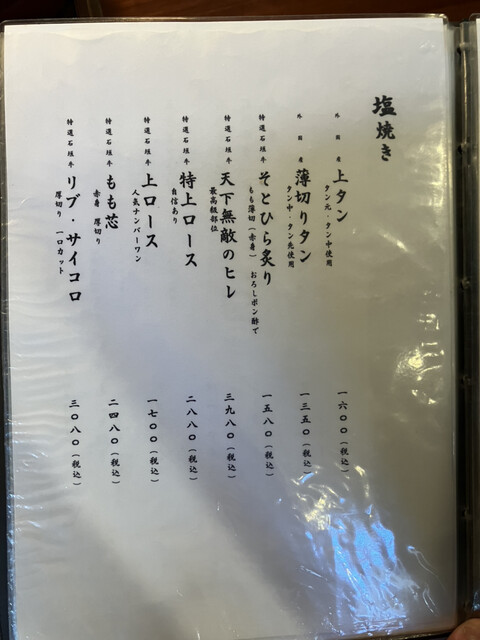 塩焼き
外国産 上タン
タン元・タン中使用
一六〇〇(税込)
外国産 薄切りタン
タン中・タン先使用
一三五〇(税込)
特選石垣牛 そとひら炙り
もも薄切(赤身) おろしポン酢で
一五八〇(税込)
特選石垣牛 天下無敵のヒレ
最高級部位
三九八〇(税込)
特選石垣牛 特上ロース
自信あり
二八八〇(税込)
特選石垣牛 上ロース
人気ナンバーワン
一七〇〇(税込)
特選石垣牛 もも芯
赤身 厚切り
二四八〇(税込)
特選石垣牛 リブ・サイコロ
厚切り 一口カット
三〇八〇(税込)